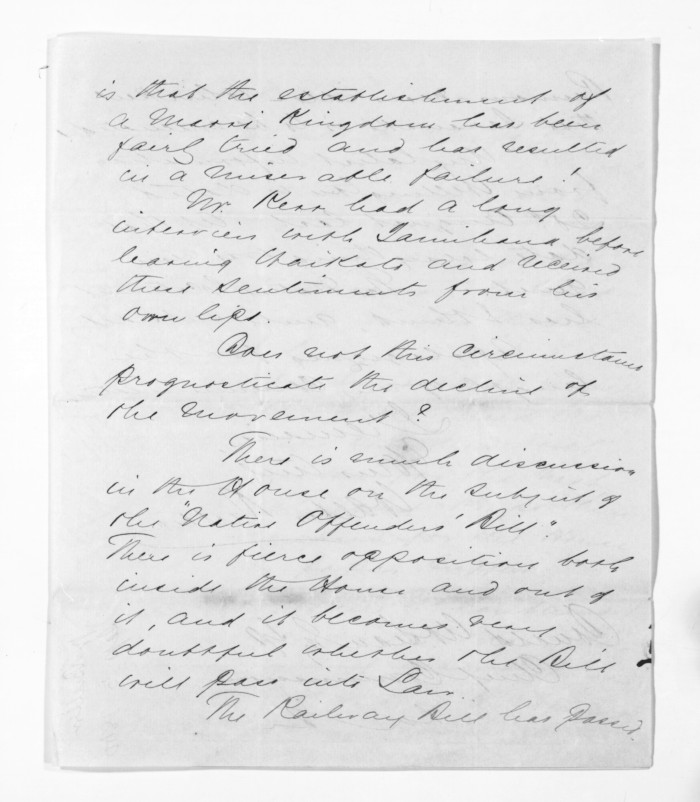 is that the establishment of
a Maori Kingdom has been
fairly tried and has resulted
in a miserable failure!
Mr. Kerr had a long
interview with Tamihana before
leaving Waikato and received
these sentiments from his
own lips.
Does not this circumstance
prognosticate the decline of
the movement?
There is much discussion
in the House on the subject of
the "Native Offenders' Bill".
There is fierce opposition both
inside the House and out of
it, and it becomes very
doubtful whether the Bill
will pass into Law.
The Railway Bill has passed.